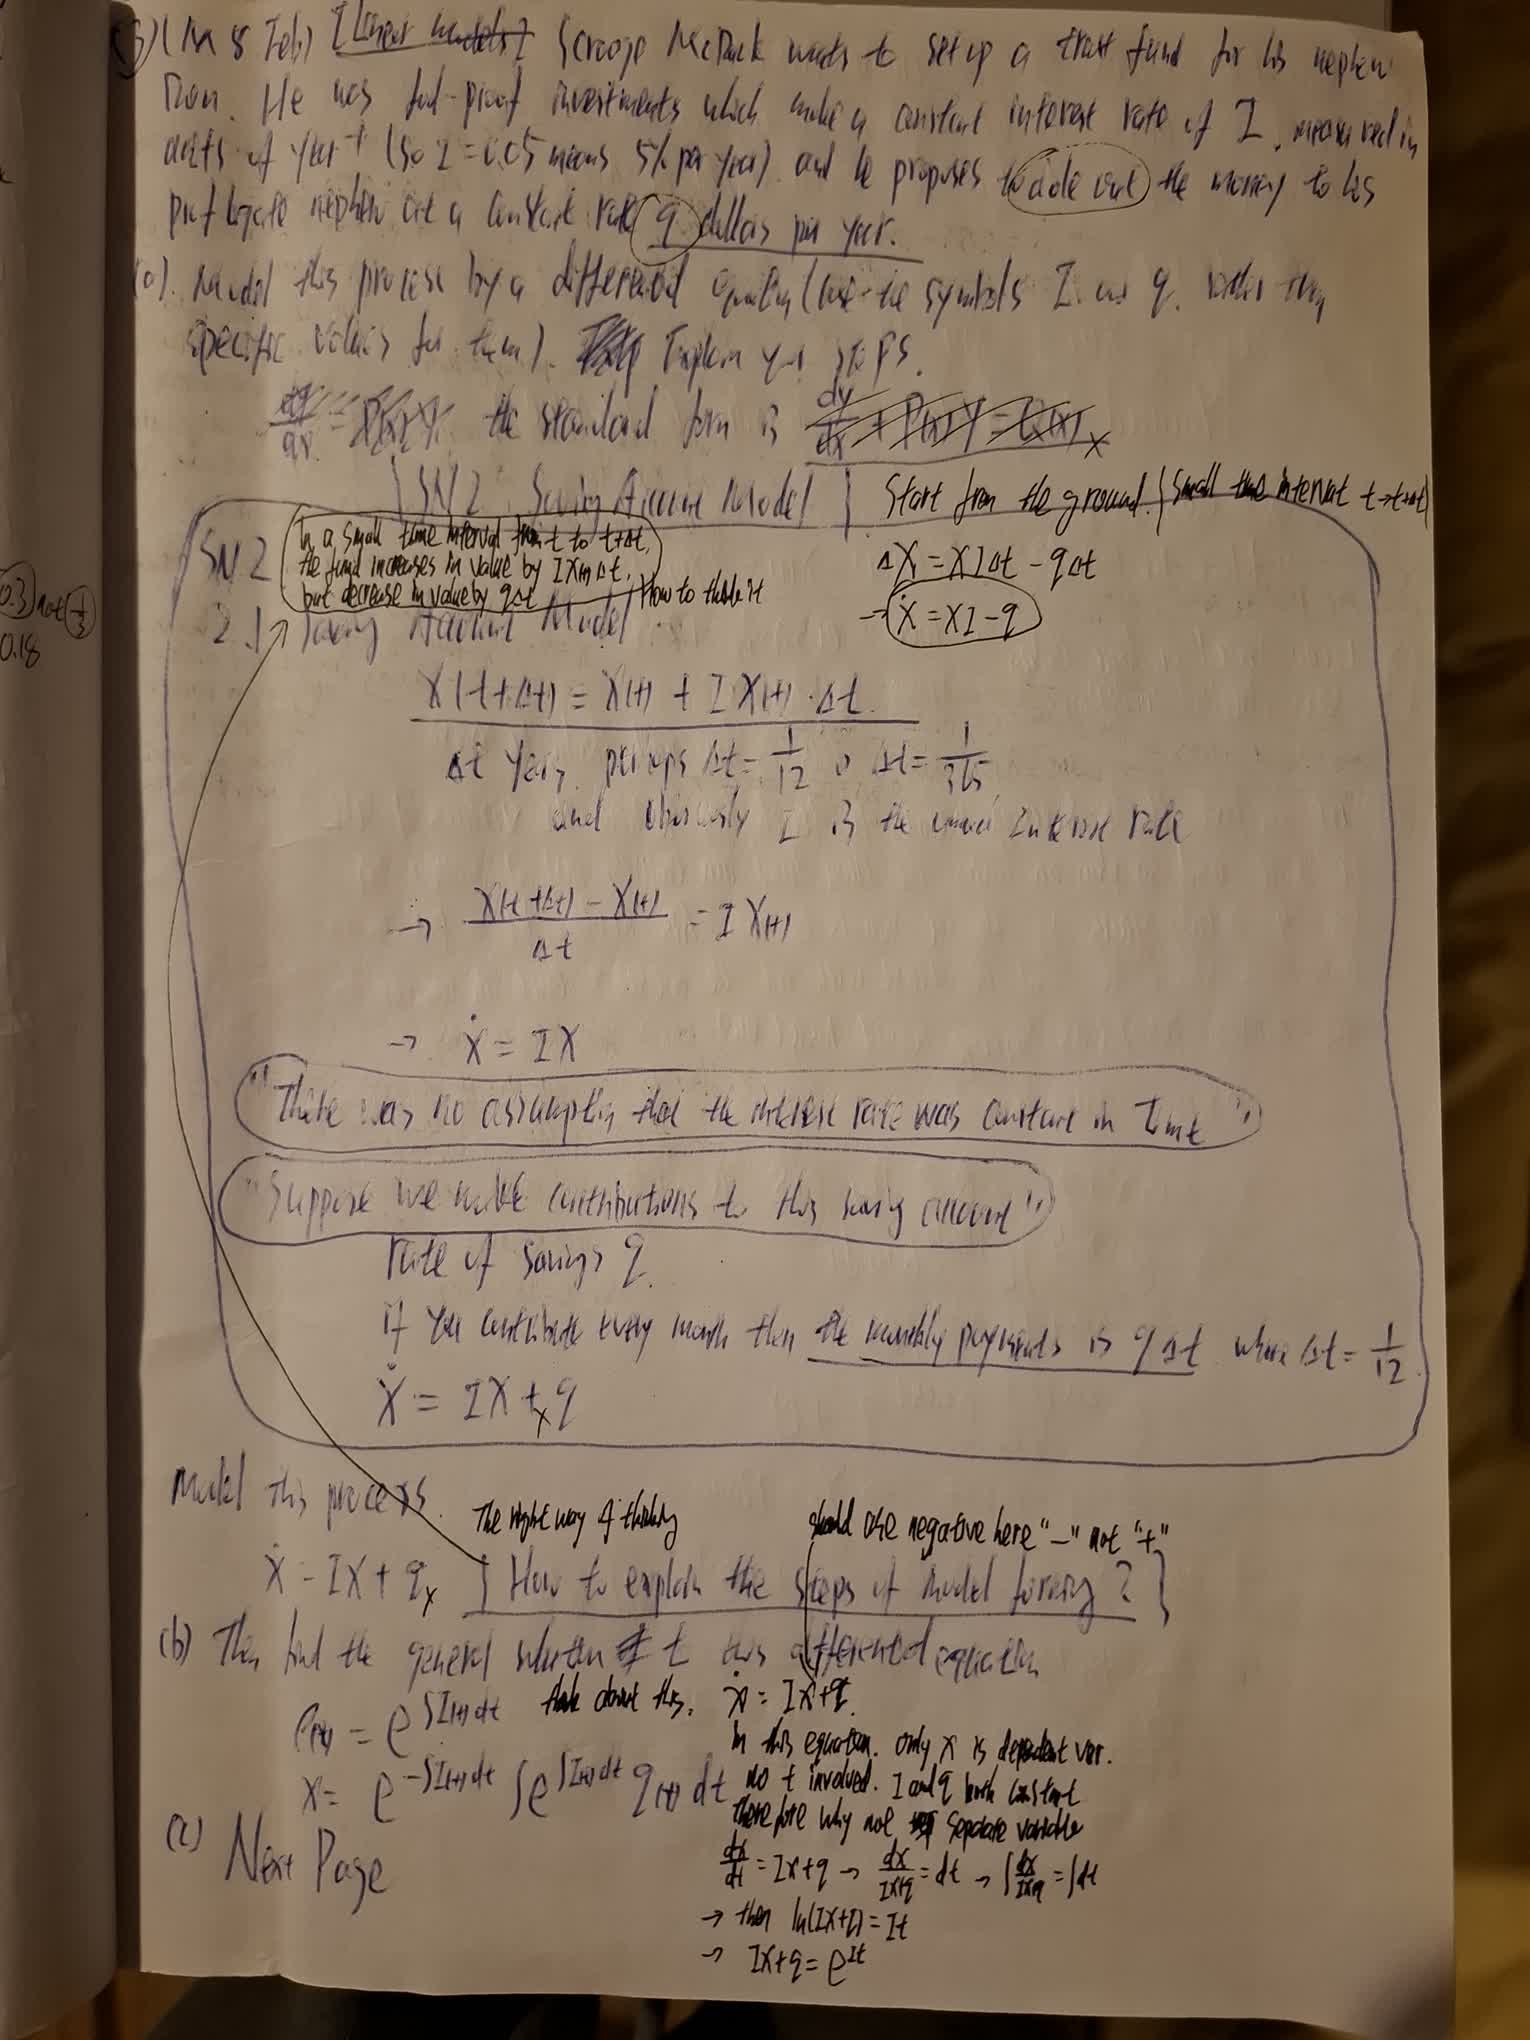 (3) (M 8 Feb) [Linear models] Scrooge McDuck wants to set up a trust fund for his nephew
Don. He has fool-proof investments which make a constant interest rate of I, measured in
units of year⁻¹ (so I = 0.05 means 5% per year) and he proposes to dole out the money to his
nephew at a constant rate q dollars per year.
(a). Model this process by a differential equation (use the symbols I and q, rather than
specific values for them). Explain your steps.
the standard form is dy/dx + P(x)y = Q(x) x
SN 2 Saving Account Model
Start from the ground. (Small time interval t→t+Δt)
SN 2
In a small time interval from t to t+Δt,
the fund increases in value by I X(t) Δt,
but decrease in value by qΔt
How to think it
ΔX = XIΔt - qΔt
→ Ẋ = XI - q
0.3 not 1/3
0.18
2.1 Saving Account Model.
X(t+Δt) = X(t) + I X(t) · Δt.
Δt years, perhaps Δt = 1/12 or Δt = 1/365
and obviously I is the interest rate
→ (X(t+Δt) - X(t))/Δt = I X(t)
→ Ẋ = IX
"There was no assumption that the interest rate was constant in Time"
"Suppose we make contributions to this saving account"
rate of savings q.
if you contribute every month then the monthly payments is qΔt where Δt = 1/12.
Ẋ = IX +x q
Model this process.
The right way of thinking
should use negative here "-" not "+"
Ẋ = IX + q x [How to explain the steps of model forming?]
(b) Then find the general solution t this differential equation
ρ(x) = e^∫I(t)dt
think about this.
Ẋ = IX+q.
In this equation. only x is dependent var.
no t involved. I and q both constant
therefore why not separate variable
x = e^-∫I(t)dt ∫e^∫I(t)dt q(t) dt
(c) Next Page
dx/dt = Ix+q → dx/Ix+q = dt → ∫dx/Ix+q = ∫dt
→ then ln(Ix+I) = It
→ Ix+q = e^It